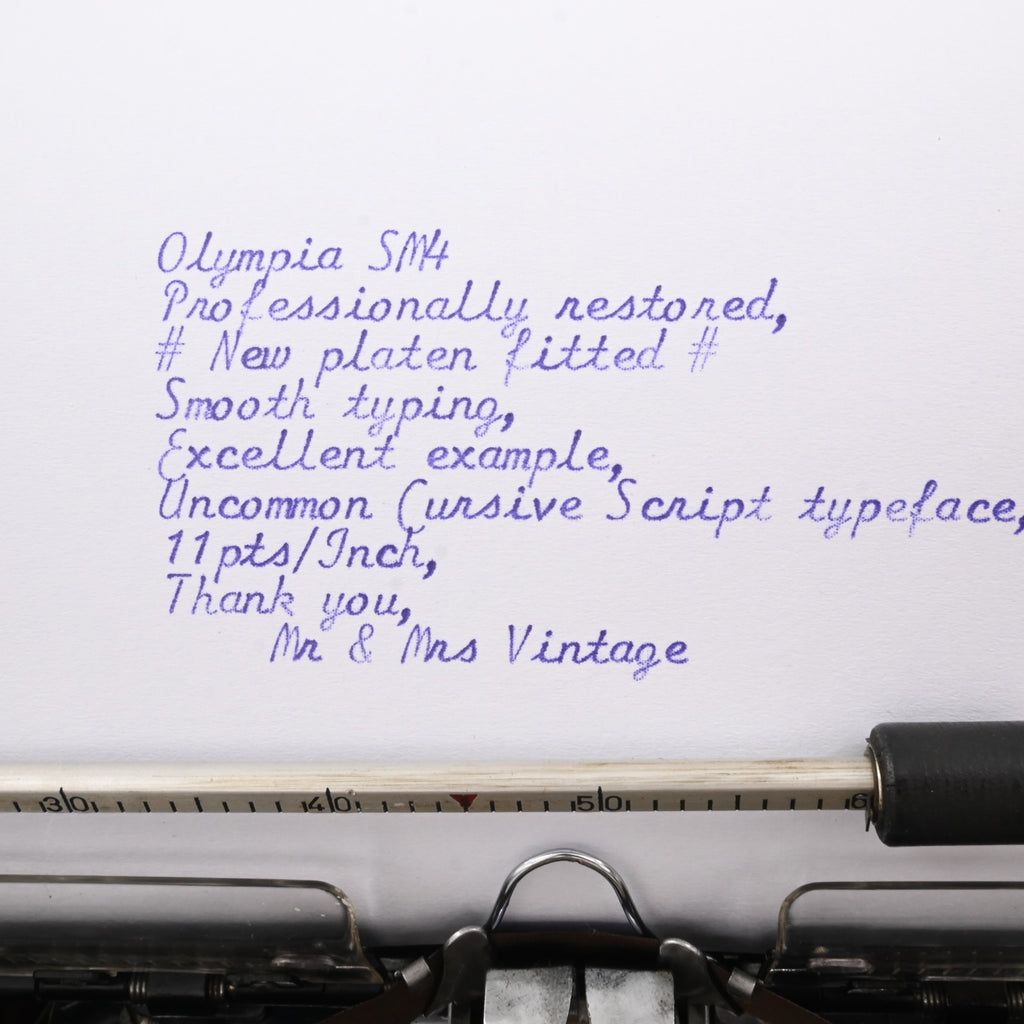 Olympia SM4
Professionally restored,
# New platen fitted #
Smooth typing,
Excellent example,
Uncommon Cursive Script typeface,
11pts/Inch,
Thank you,
Mr & Mrs Vintage
30 40 50 6